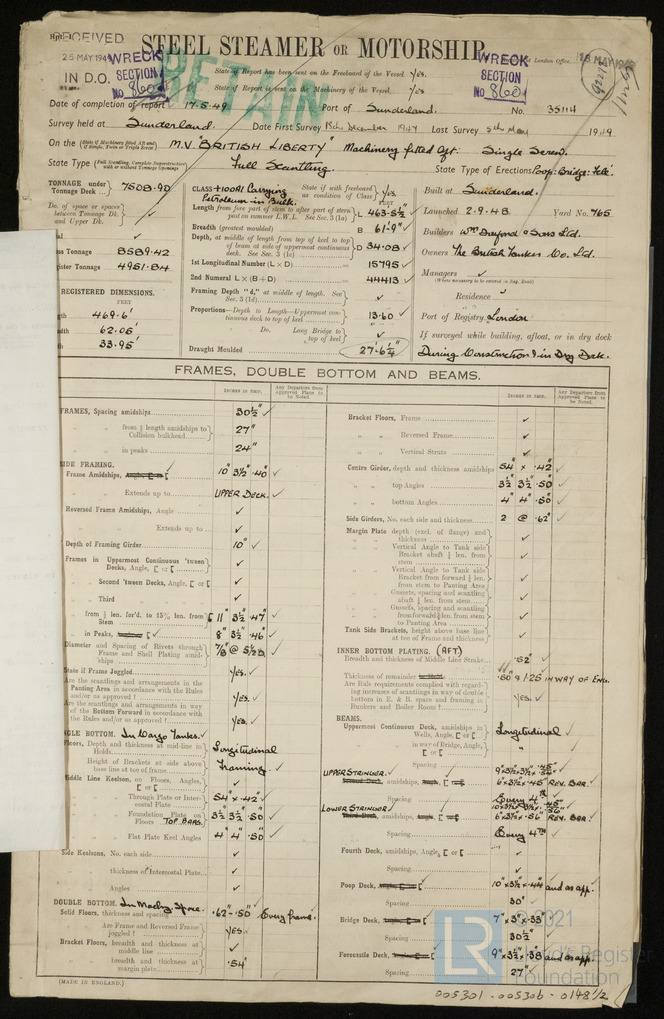 RECEIVED
25 MAY 1949
IN D.O.
WRECK
SECTION
No 860
RETAIN
STEEL STEAMER OR MOTORSHIP.
WRECK
SECTION
No 860
State of Report has been sent on the Freeboard of the Vessel Yes.
State of Report is sent on the Machinery of the Vessel Yes
Date of completion of report 17.5.49 Port of Sunderland. No. 35114
Survey held at Sunderland. Date First Survey December 1947 Last Survey 5th May 1949
On the M.V. "BRITISH LIBERTY" Machinery fitted Aft: Single Screw.
State Type Full Scantling. State Type of Erections Poop: Bridge: Fcle.
TONNAGE under
Tonnage Deck 7508.90
Do. of space or spaces
between Tonnage Dk.
and Upper Dk.
8589.42
4951.84
REGISTERED DIMENSIONS.
FEET
469.6'
62.05'
33.95'
CLASS +100A1 Carrying
Petroleum in Bulk.
State if with freeboard
as condition of Class Yes
FEET
Length from fore part of stem to after part of stern
post on summer L.W.L. See Sec. 3 (1a) L 463'-5½"
Breadth (greatest moulded) B 61'-9"
Depth, at middle of length from top of keel to top
of beam at side of uppermost continuous
deck. See Sec. 3 (1c) D 34.08
1st Longitudinal Number (L × D) 15795
2nd Numeral L × (B + D) 44413
Framing Depth "d," at middle of length. See
Sec. 3 (1d)
Proportions—Depth to Length—Uppermost con-
tinuous deck to top of keel 13.60
Do. Long Bridge to
top of keel
Draught Moulded 27'-6¼"
Built at Sunderland.
Launched 2.9.48 Yard No. 765
Builders Wm Doxford & Sons Ltd.
Owners The British Tanker Co. Ltd.
Managers
Residence
Port of Registry London
If surveyed while building, afloat, or in dry dock
During Construction & in Dry Dock.
FRAMES, DOUBLE BOTTOM AND BEAMS.
INCHES IN SHIP.
Any Departure from
Approved Plans to
be Noted.
INCHES IN SHIP.
Any Departure from
Approved Plans to
be Noted.
FRAMES, Spacing amidships 30½"
from ⅕ length amidships to
Collision bulkhead 27"
in peaks 24"
SIDE FRAMING.
Frame Amidships, 10" 3½" .40"
Extends up to UPPER DECK.
Reversed Frame Amidships, Angle
Extends up to
Depth of Framing Girder 10"
Frames in Uppermost Continuous 'tween
Decks, Angle, [ or [
Second 'tween Decks, Angle, [ or [
Third
from ⅕ len. for'd. to 15% len. from
Stem 11" 3½" .47"
in Peaks, 8" 3½" .46
Diameter and Spacing of Rivets through
Frame and Shell Plating amid-
ships 7/8" @ 5½ D
State if Frame Joggled Yes.
Are the scantlings and arrangements in the
Panting Area in accordance with the Rules
and/or as approved ? Yes.
Are the scantlings and arrangements in way
of the Bottom Forward in accordance with
the Rules and/or as approved ? Yes.
GLE BOTTOM. In Cargo Tanks.
Floors, Depth and thickness at mid-line in
Holds Longitudinal
Height of Brackets at side above
base line at toe of frame Framing.
Middle Line Keelson, on Floors, Angles,
[ or [
Through Plate or Inter-
costal Plate 54" × .42"
Foundation Plate on
Floors TOP BARS. 3½" 3½" .50
Flat Plate Keel Angles 4" 4" .50
Side Keelsons, No. each side
thickness of Intercostal Plate
Angles
DOUBLE BOTTOM. In Machy. Space.
Solid Floors, thickness and spacing .62"-.50" Every frame.
Are Frame and Reversed Frame
joggled ? YES.
Bracket Floors, breadth and thickness at
middle line
breadth and thickness at
margin plate .54"
(MADE IN ENGLAND.)
Bracket Floors, Frame
Reversed Frame
Vertical Struts
Centre Girder, depth and thickness amidships 54" × .42"
top Angles 3½" 3½" .50"
bottom Angles 4" 4" .50"
Side Girders, No. each side and thickness 2 @ .62"
Margin Plate depth (excl. of flange) and
thickness
Vertical Angle to Tank side
Bracket abaft ¼ len. from
stem
Vertical Angle to Tank side
Bracket from forward ¼ len.
from stem to Panting Area
Gussets, spacing and scantling
abaft ¼ len. from stem
Gussets, spacing and scantling
from forward ¼ len. from stem
to Panting Area
Tank Side Brackets, height above base line
at toe of Frame and thickness
INNER BOTTOM PLATING. (AFT)
Breadth and thickness of Middle Line Strake .52"
Thickness of remainder .50 & 1.25 IN WAY OF ENG.
Are Rule requirements complied with regard-
ing increases of scantlings in way of double
bottoms in E. & B. space and framing in
Bunkers and Boiler Room ? YES
BEAMS.
Uppermost Continuous Deck, amidships in
Wells, Angle, [ or [ Longitudinal
in way of Bridge, Angle,
[ or [ "
Spacing
UPPER STRINGER. amidships, 6"×3½"×.45" REV. BAR.
Spacing Every 4th
LOWER STRINGER amidships, 6"×3½"×.56" REV. BAR
Spacing Every 4TH
Fourth Deck, amidships, Angle, [ or [
Spacing
Poop Deck, 10"×3½"×.44 and as app.
Spacing 30"
Bridge Deck, 7"×3"×.38"
Spacing 30½"
Forecastle Deck, 9"×3½"×.38 and as app.
Spacing 27"
LR
© 2021
Lloyd's Register
Foundation
005301-005306-0148½